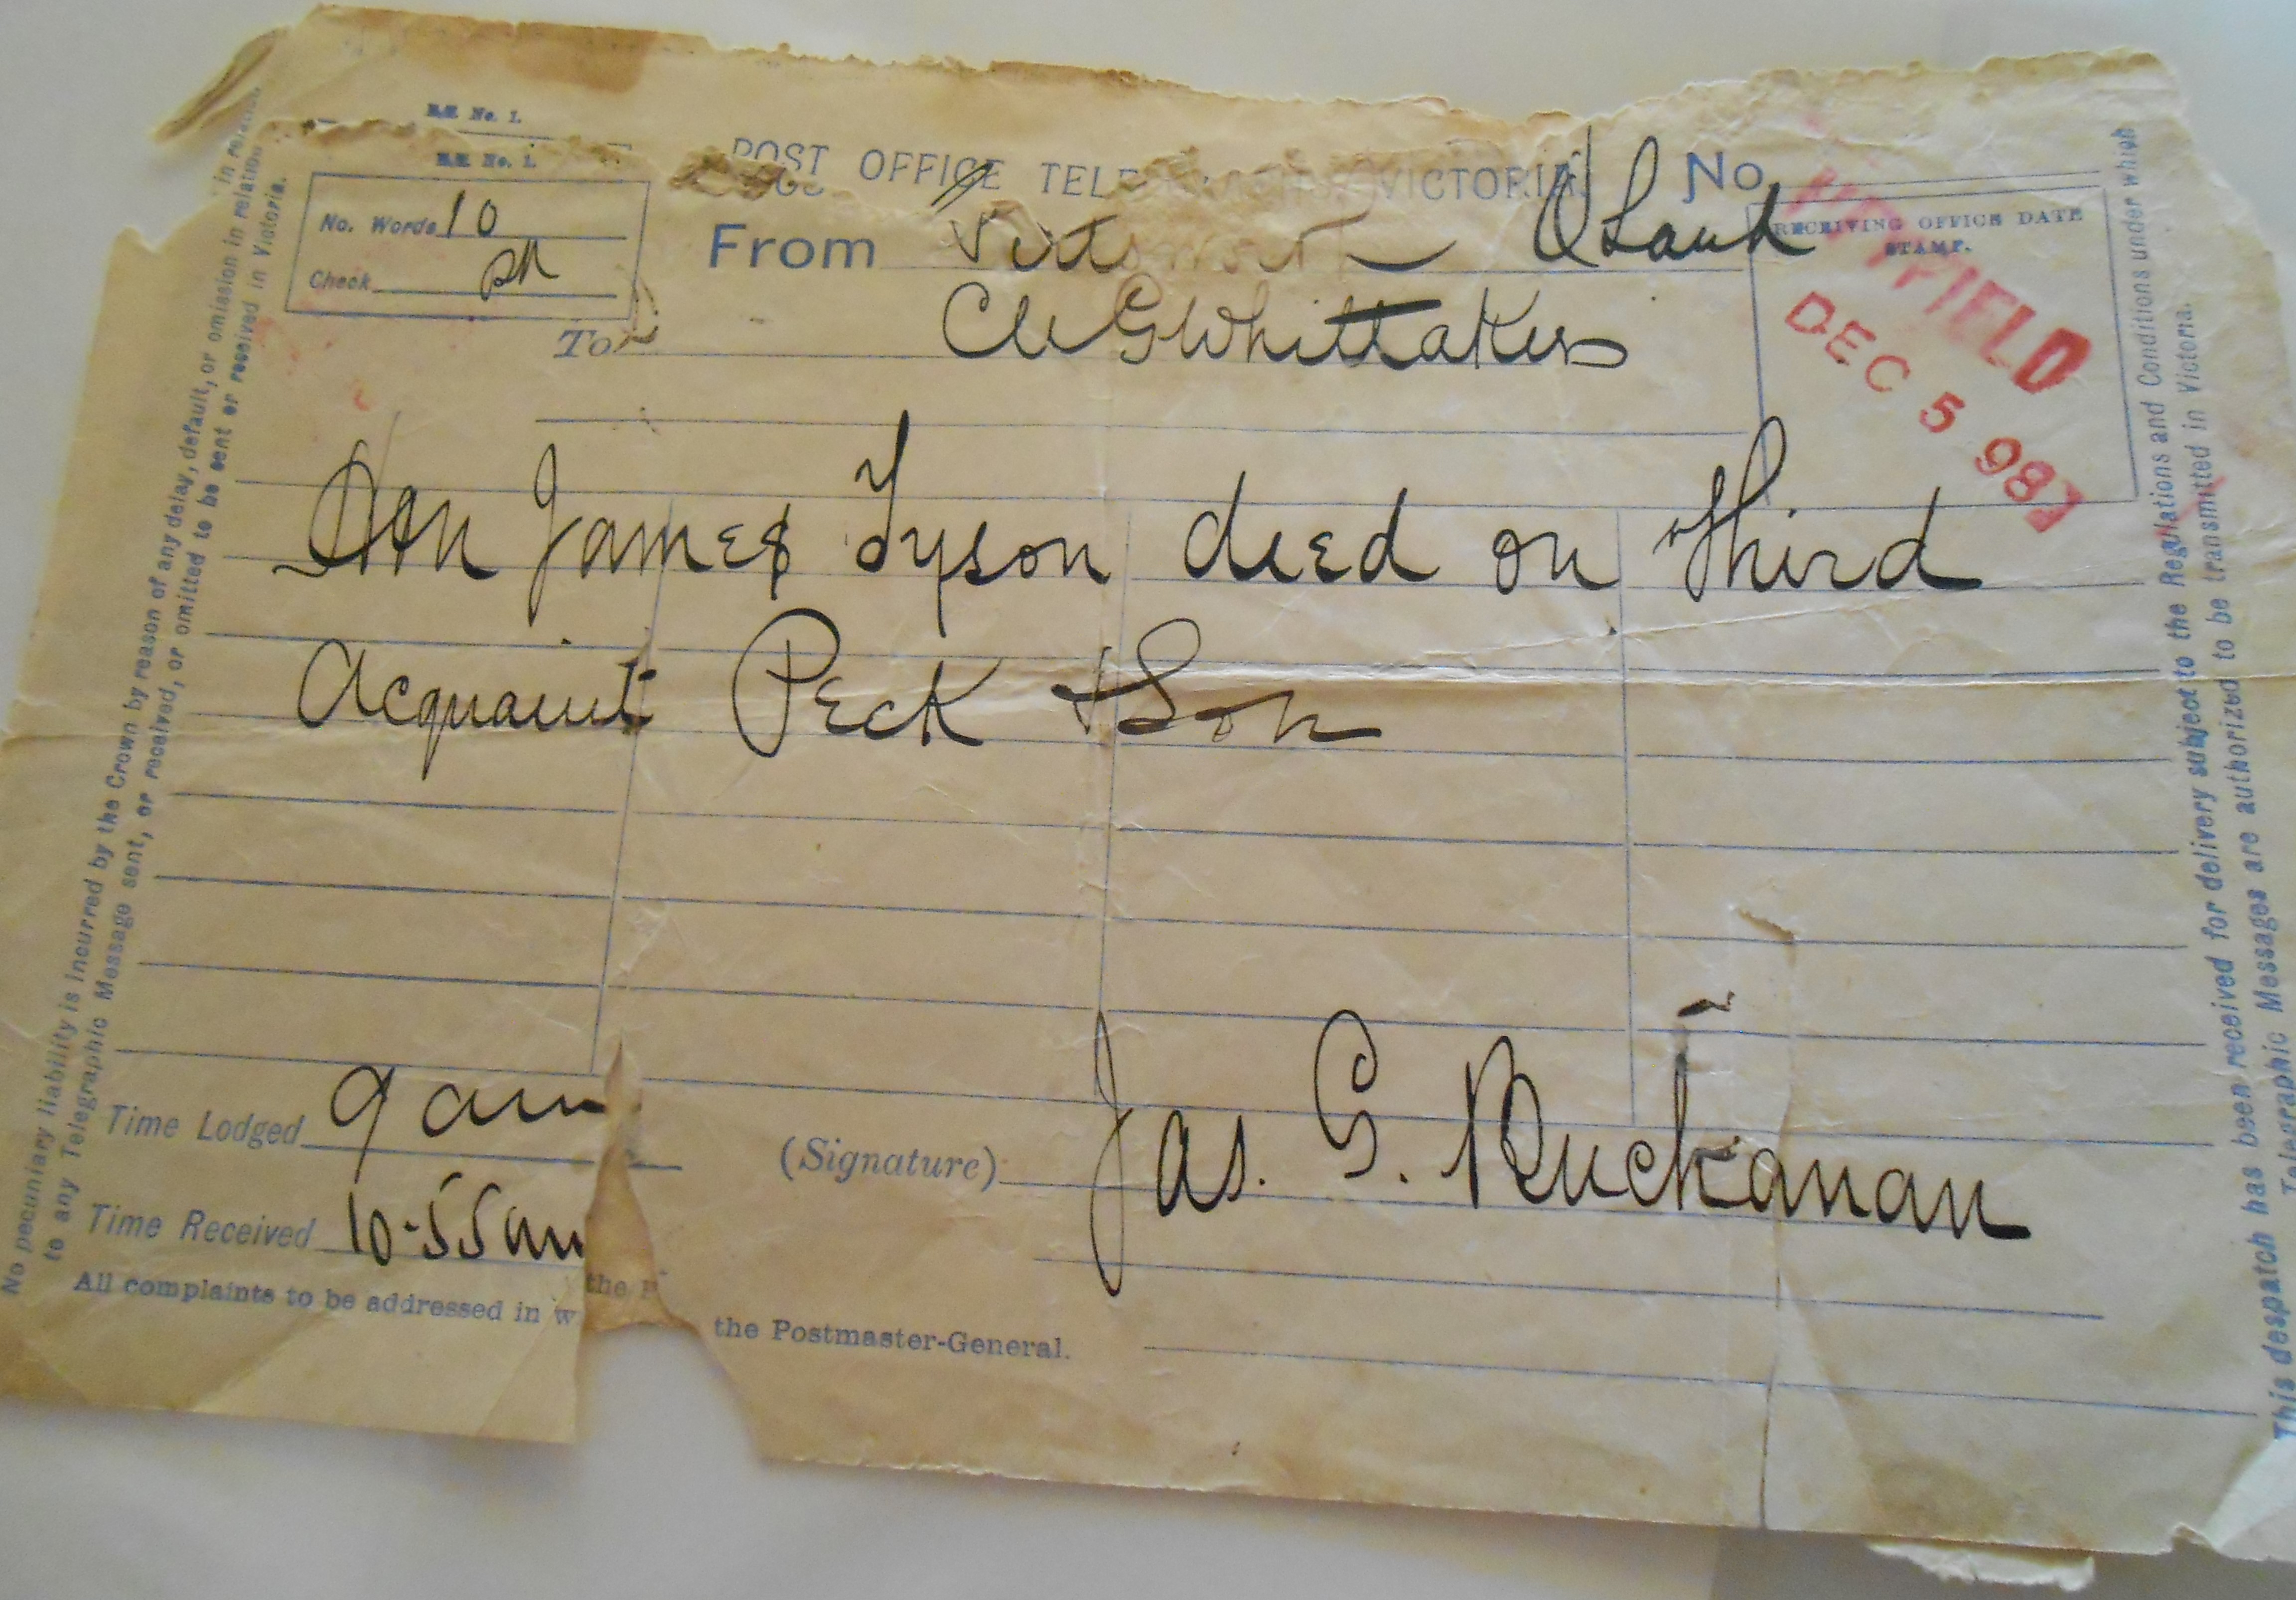 B.E. No. 1.
B.E. No. 1.
No. Words 10
Check
POST OFFICE VICTORIA
No
From Q Land
To C W G Whittakers
RECEIVING OFFICE DATE
STAMP.
FIELD
DEC 5 98
Hon James Tyson died on third
Acquaint Peck & Son
Time Lodged 9 am
Time Received 10-55 am
(Signature) Jas. G. Buchanan
All complaints to be addressed in
the
the Postmaster-General.
No pecuniary liability is incurred by the Crown by reason of any delay, default, or omission in relation
to any Telegraphic Message sent, or received, or omitted to be sent or received in Victoria.
in relation
This despatch has been received for delivery subject to the Regulations and Conditions under which
Telegraphic Messages are authorized to be transmitted in Victoria.